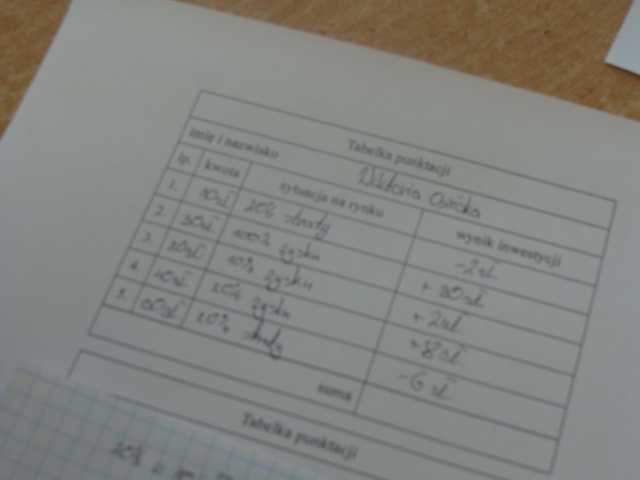 Tabelka punktacji
imię i nazwisko Wiktoria
lp. kwota sytuacja na rynku wynik inwestycji
1. 10 zł 20% straty -2 zł
2. zł 100% zysku + zł
3. 20 zł 10% zysku + 2 zł
4. 40 zł 20% zysku +8 zł
5. 60 zł 10% straty -6 zł
suma
Tabelka punktacji
20%